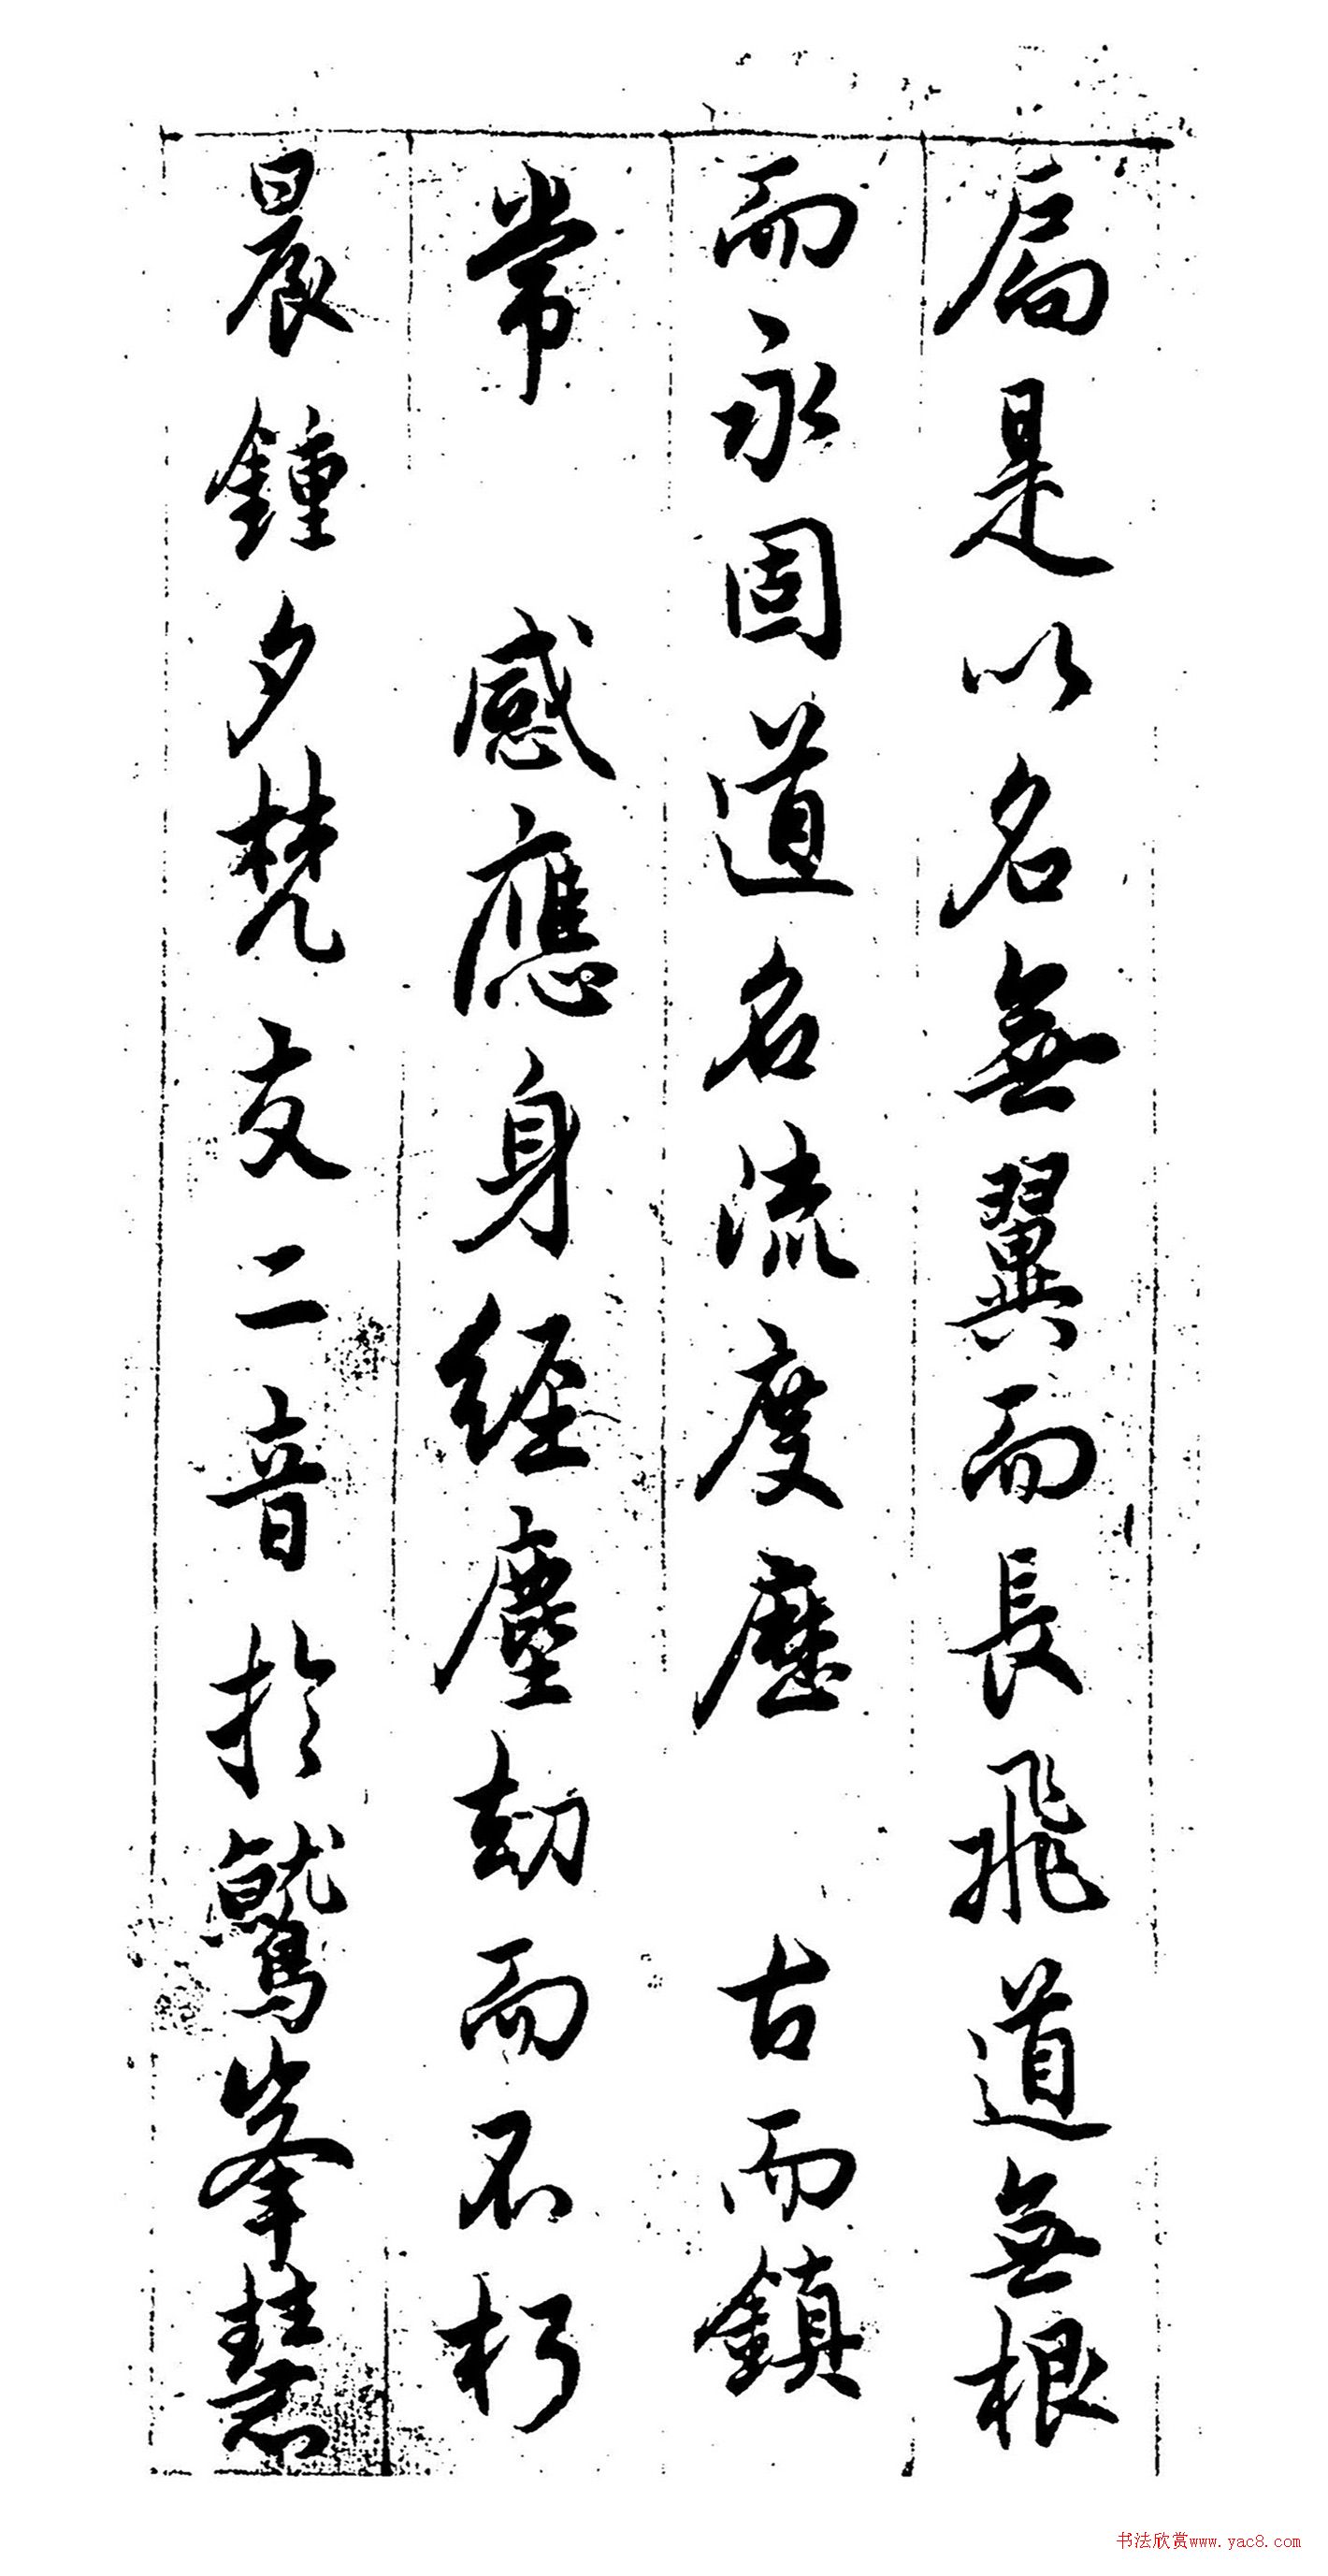 扃是以名無翼而長飛道無根
而永固道名流慶歷 古而鎮
常 感應身經塵劫而不朽
晨鍾夕梵交二音於鷲峯慧
书法欣赏www.yac8.com